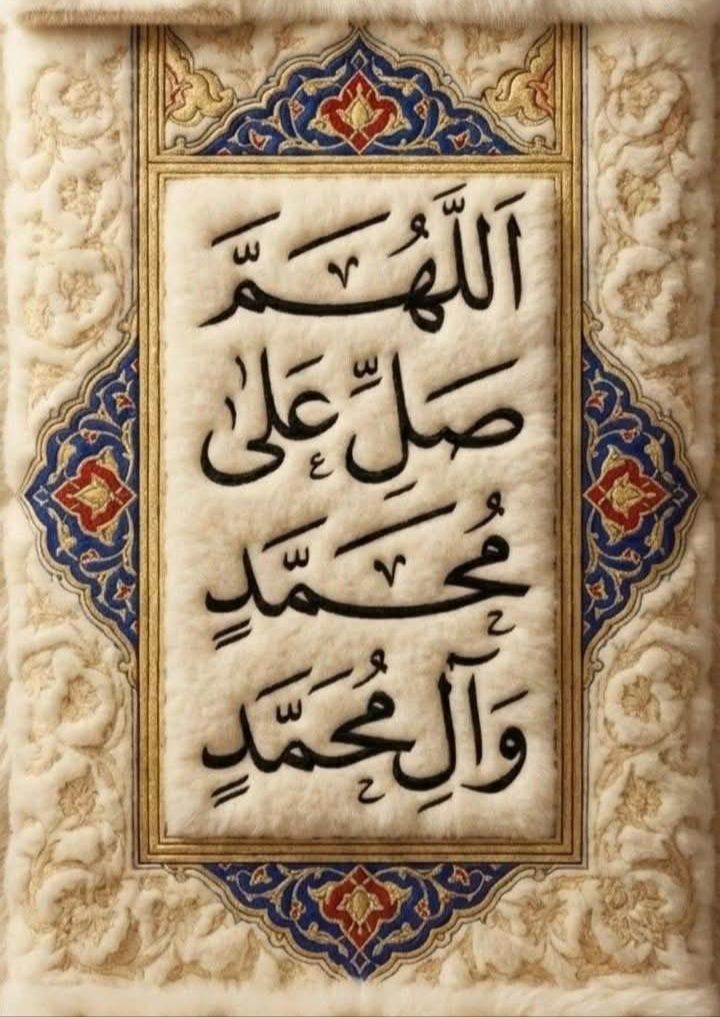 اَللَّهُمَّ
صَلِّ عَلىٰ
مُحَمَّدٍ
وَآلِ مُحَمَّدٍ